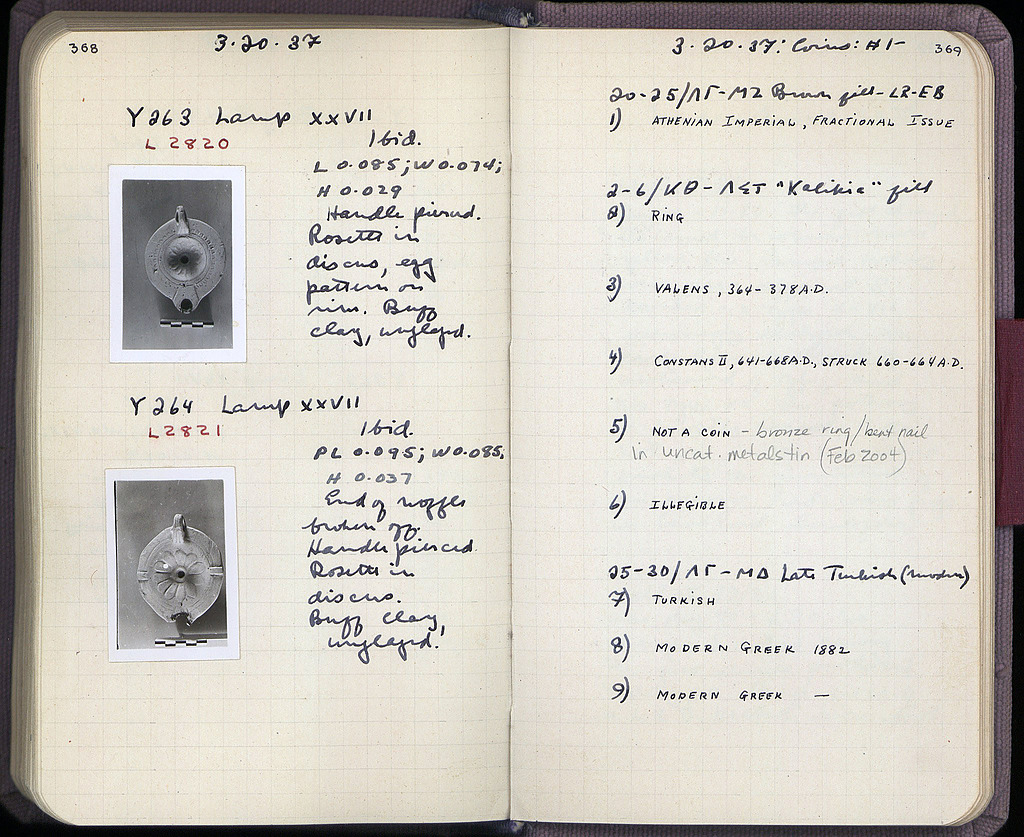 368
3·20·37
Y 263 Lamp XXVII
L 2820
Ibid.
L 0.085; W 0.074;
H 0.029
Handle pierced.
Rosette in
discus, egg
pattern on
rim. Buff
clay, unglazed.
Y 264 Lamp XXVII
L 2821
Ibid.
PL 0.095; W 0.085;
H 0.037
End of nozzle
broken off.
Handle pierced
Rosette in
discus.
Buff clay,
unglazed.
3·20·37: Coins: #1-
369
20-25/ΛΓ-ΜΖ Brown fill-LR-EB
1) ATHENIAN IMPERIAL, FRACTIONAL ISSUE
2-6/ΚΘ-ΛΣΤ "Kalikia" fill
2) RING
3) VALENS, 364-378 A.D.
4) CONSTANS II, 641-668 A.D., STRUCK 660-664 A.D.
5) NOT A COIN - bronze ring/bent nail
in uncat. metals tin (Feb 2004)
6) ILLEGIBLE
25-30/ΛΓ-ΜΔ Late Turkish (modern)
7) TURKISH
8) MODERN GREEK 1882
9) MODERN GREEK —